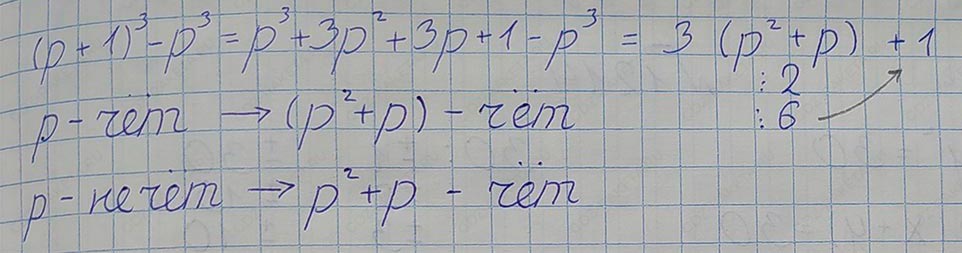 (p + 1)³ - p³ = p³ + 3p² + 3p + 1 - p³ = 3 (p² + p) + 1
⋮ 2
p - чёт → (p² + p) - чёт
⋮ 6
p - нечёт → p² + p - чёт